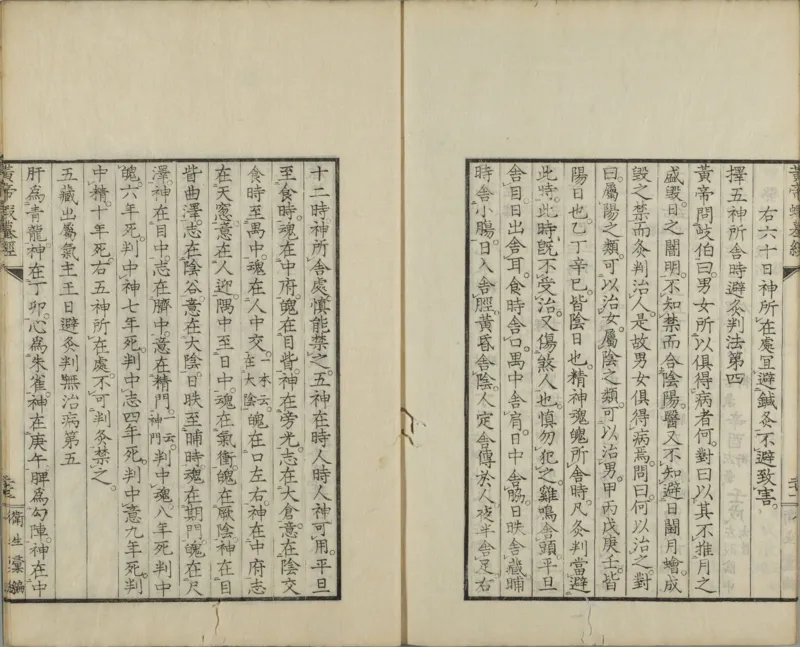 右六十日神所在處宜避鍼灸不避致害。
擇五神所舍時避灸判法第四
黃帝問歧伯曰男女所以俱得病者何對曰以其不推月之
盛毀日之闇明不知禁而合陰陽醫又不知避日闇月蝕成
毀之禁而灸判治人是故男女俱得病焉問曰何以治之對
曰屬陽之類可以治女屬陰之類可以治男甲丙戊庚壬皆
陽日也乙丁辛巳皆陰日也精神魂魄所舍時凡灸判當避
此時此時既不受治又傷煞人也慎勿犯之雞鳴舍頭平旦
舍目日出舍耳食時舍口禺中舍肩日中舍脇日昳舍藏晡
時舍小腸日入舍脛黃昏舍陰人定舍傳於人夜半舍足右
十二時神所舍處慎能禁之五神在時人時人神可用平旦
至食時魂在中府魄在目眥神在旁光志在大倉意在陰交
食時至禺中魂在人中交一本云在大陰魄在口左右神在中府志
在天窓意在人迎隅中至日中魂在氣衝魄在厥陰神在目
眥曲澤志在陰谷意在大陰日昳至晡時魂在期門魄在尺
澤神在目中志在臍中意在精門一云神門判中魂八年死判中
魄六年死判中神七年死判中志四年死判中意九年死判
中精十年死右五神所在處不可判灸禁之
五藏出屬氣主王日避灸判無治病第五
肝爲青龍神在丁卯心爲朱雀神在庚午脾爲勾陣神在中
黃帝蝦蟇經
衛生彙編